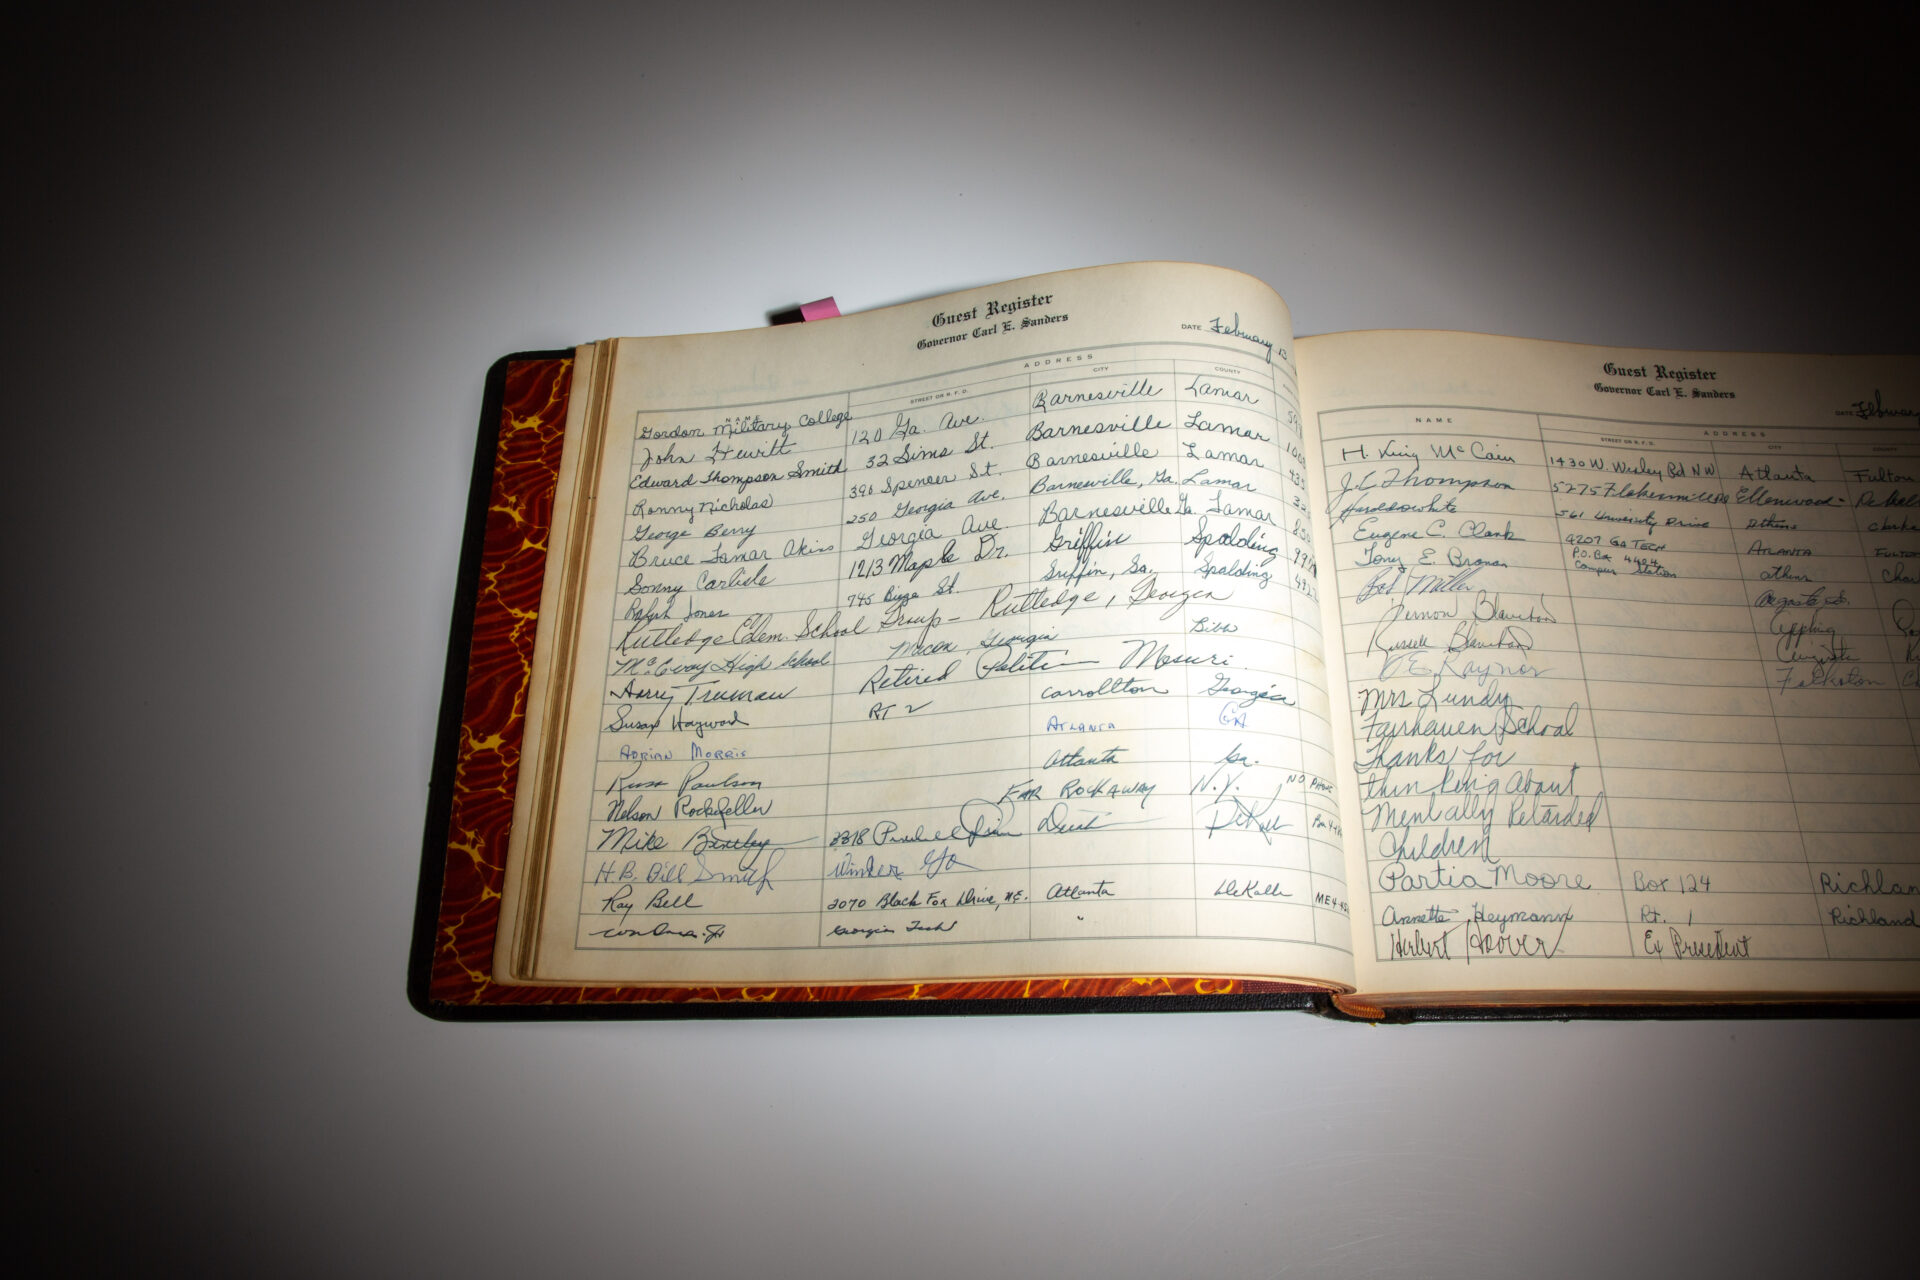 Guest Register
Governor Carl E. Sanders
DATE February 13
ADDRESS
NAME STREET OR R.F.D. CITY COUNTY
Gordon Military College
John Hewitt 120 Ga. Ave. Barnesville Lamar
Edward Thompson Smith 32 Sims St. Barnesville Lamar
Ronny Nicholas 390 Spencer St. Barnesville Lamar
George Berry 250 Georgia Ave. Barnesville, Ga. Lamar
Bruce Lamar Akins Georgia Ave. Barnesville Ga. Lamar
Sonny Carlisle 1213 Maple Dr. Griffin Spalding
Ralph Jones 745 St. Griffin, Ga. Spalding
Rutledge Elem. School Group - Rutledge, Georgia
McEvoy High School Macon, Georgia Bibb
Harry Truman Retired Mosuri
Susan Hayward RT 2 Carrollton Georgia
ADRIAN MORRIS ATLANTA GA
Russ Paulson Atlanta Ga.
Nelson Rockefeller FAR ROCKAWAY N.Y. NO PHONE
Mike 2318 DeKalb
H.B. Bill Smith Winder Ga
Ray Bell 2070 Black Fox Drive, N.E. Atlanta DeKalb ME4-
Georgia Tech "
Guest Register
Governor Carl E. Sanders
DATE Februar
ADDRESS
NAME STREET OR R.F.D. CITY COUNTY
H. King McCain 1430 W. Wesley Rd NW Atlanta Fulton
J.C. Thompson 5275 Ellenwood DeKalb
Harold White 561 University Drive Athens Clarke
Eugene C. Clark 9207 GA TECH ATLANTA FULTON
Tony E. P.O. Box 4404 Campus Station Athens
Bob Miller Augusta
Vernon Appling
Russell Augusta
Raynor Folkston
Mrs Lundy
Fairhaven School
Thanks for
thinking About
Mentally Retarded
Children
Partia Moore Box 124 Richlan
Annette Heymann Rt. 1 Richland
Herbert Hoover Ex President